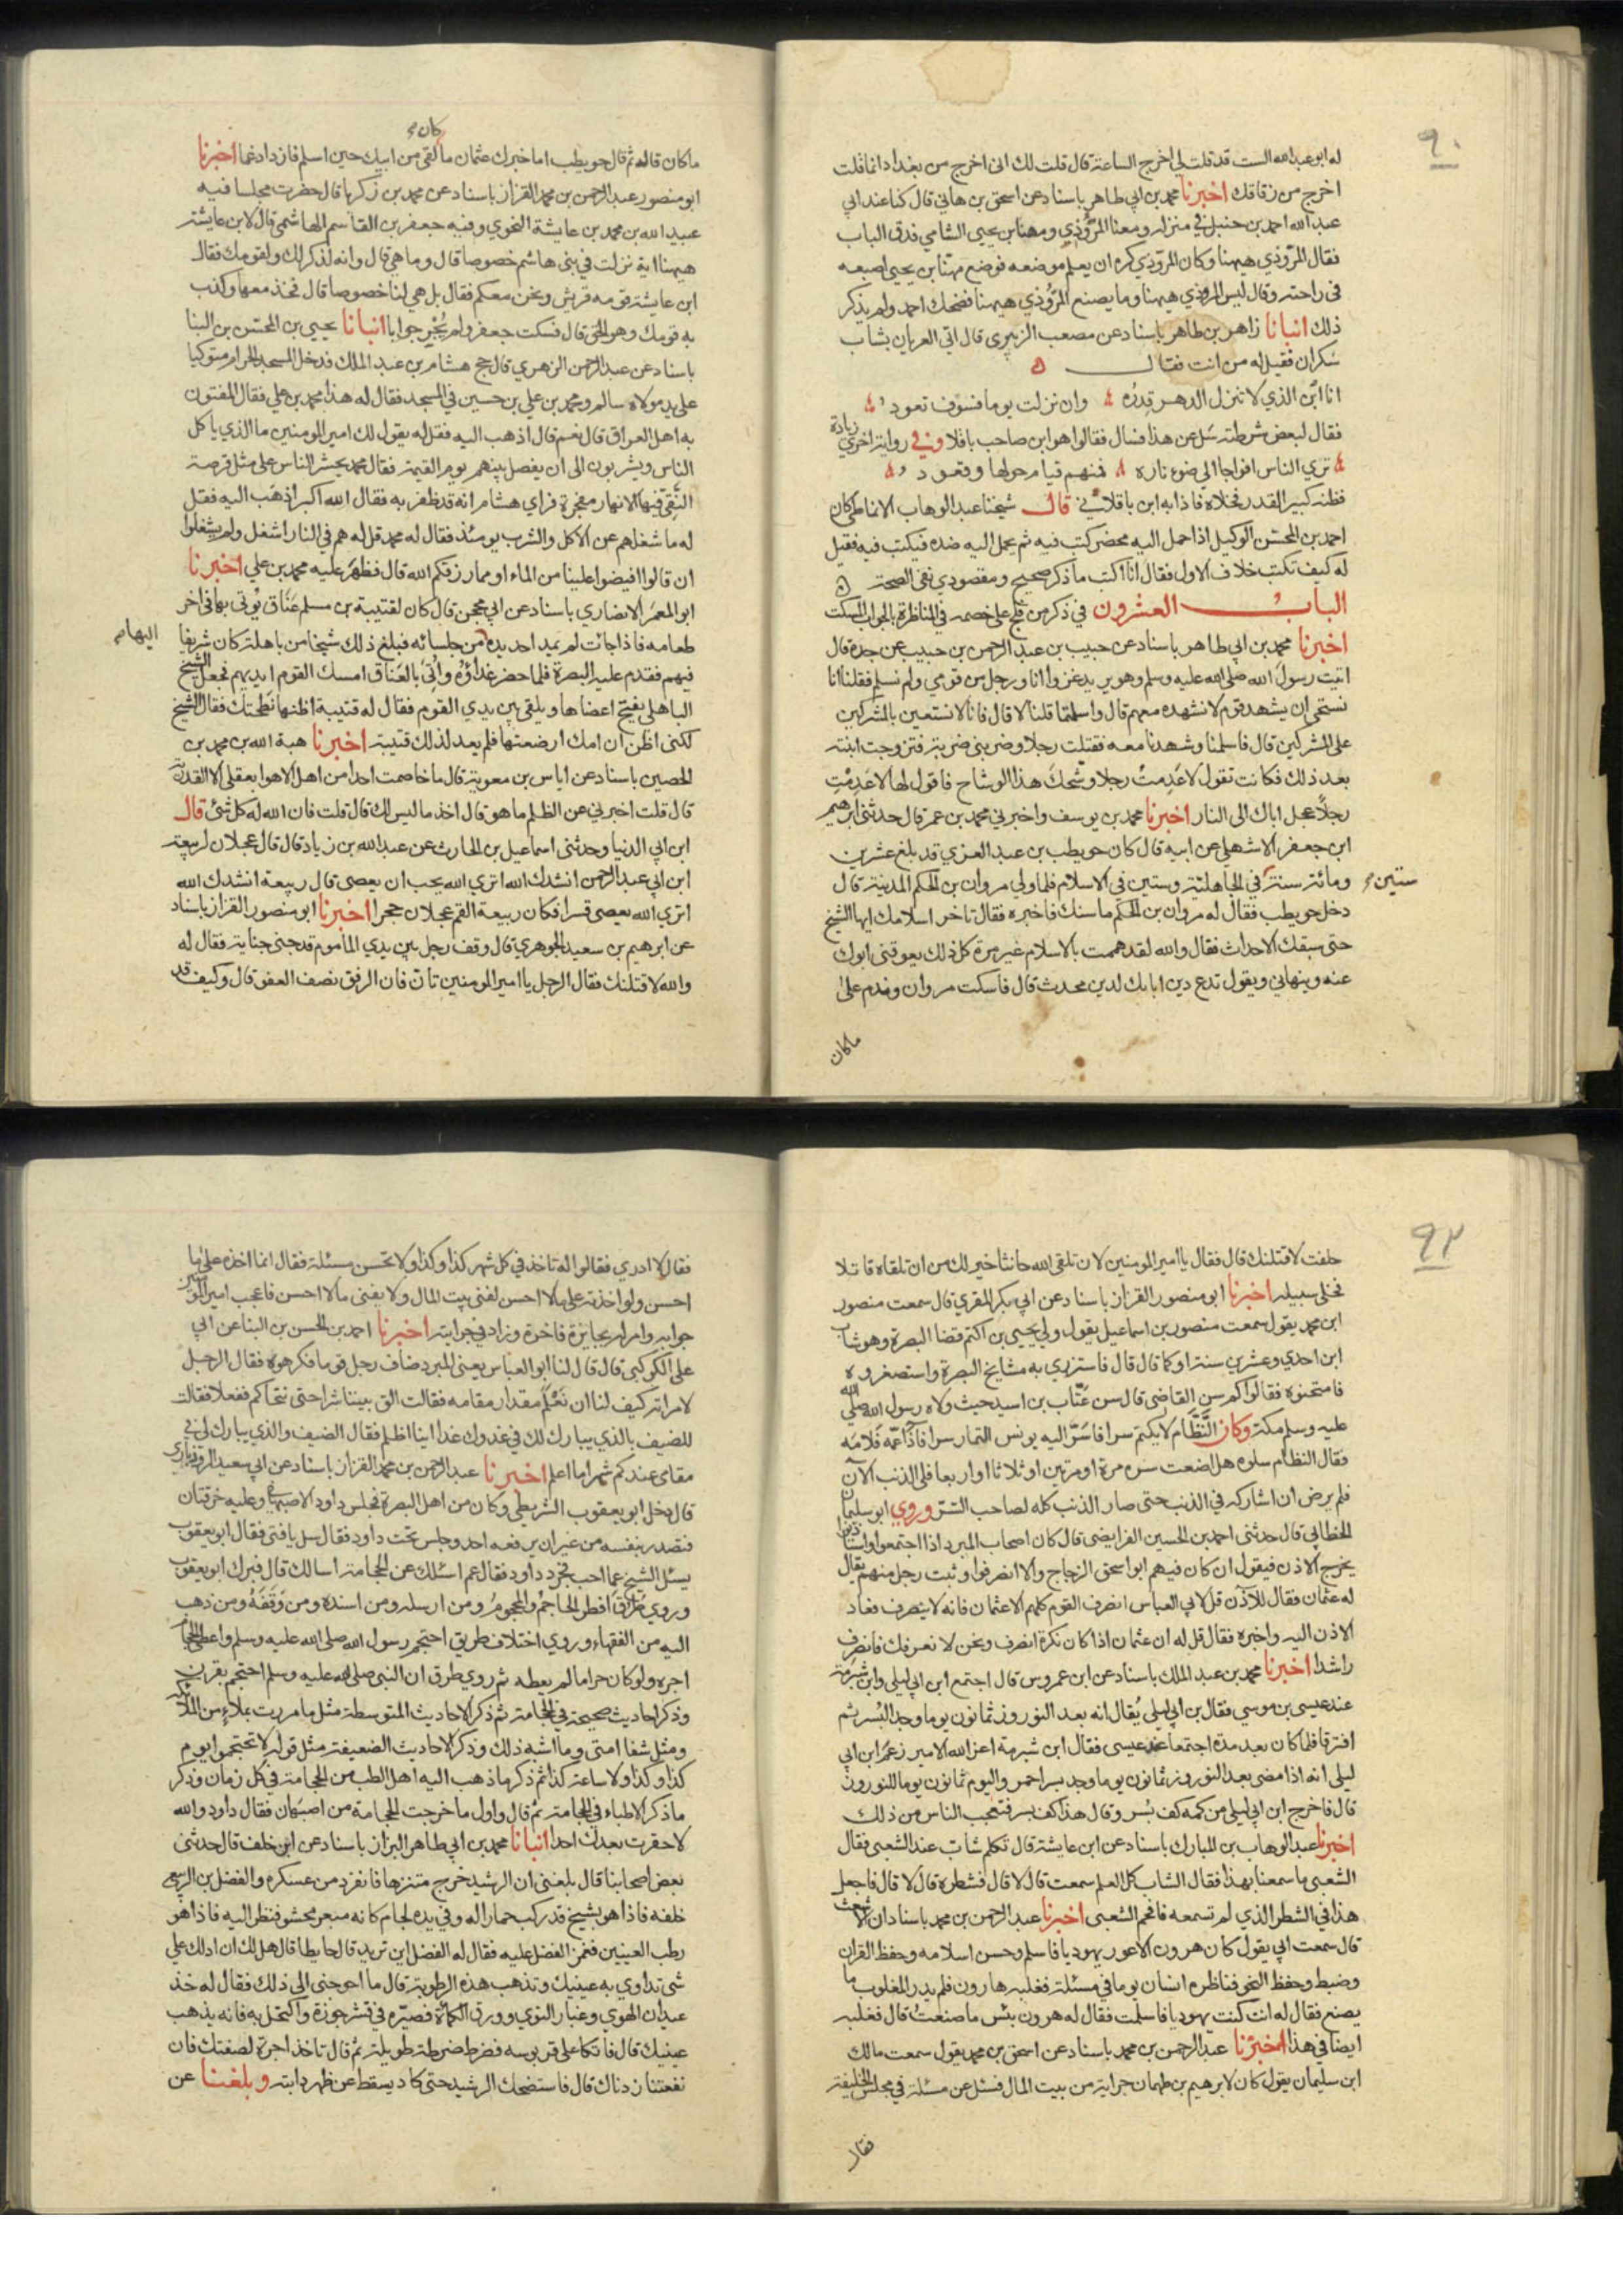 ٩٠
له ابو عبد الله الست قد قلت لي اخرج الساعة قال قلت لك انى اخرج من بغداد انما قلت
اخرج من زقاقك اخبرنا محمد بن ابي طاهر باسناد عن اسحق بن هاني قال كنا عند ابي
عبد الله احمد بن حنبل في منزله ومعنا المرُّوذي ومهنا بن يحيى الشامي فدق الباب
فقال المرّوذي ههنا وكان المروذي كره ان يعلم موضعه فوضع مهنّا بن يحيى اصبعه
فى راحته وقال ليس المروذي ههنا وما يصنع المرُّوذي ههنا فضحك احمد ولم يذكر
ذلك انبانا زاهر بن طاهر باسناد عن مصعب الزبيرى قال اتي العريان بشاب
سكران فقيل له من انت فقال
انا ابن الذي لا تنزل الدهر قدره وان نزلت يوما فسوف تعود
فقال لبعض شرطته سل عن هذا فسال فقالوا هو ابن صاحب باقلا وفي رواية اخري زيادة
تري الناس افواجا الي ضوء ناره فمنهم قيام حولها وقعود
فظنه كبير القدر فخلاه فاذا به ابن باقلاني قال شيخنا عبد الوهاب الانماطي كان
احمد بن المحسّن الوكيل اذا حمل اليه محضر كتب فيه ثم يحمل اليه ضده فيكتب فيه فقيل
له كيف تكتب خلاف الاول فقال انا اكتب ما ذكر صحيح ومقصودي نفى الصحة
الباب العشرون في ذكر من فلج على خصمه في المناظرة بالجواب المسكت
اخبرنا محمد بن ابي طاهر باسناد عن حبيب بن عبد الرحمن بن حبيب عن جده قال
اتيت رسول الله صلى الله عليه وسلم وهو يريد غزوا انا ورجل من قومي ولم نسلم فقلنا انا
نستحي ان يشهد قوم لا نشهده معهم قال واسلمتما قلنا لا قال فانا لا نستعين بالمشركين
على المشركين قال فاسلمنا وشهدنا معه فقتلت رجلا وضربنى ضربة فتزوجت ابنته
بعد ذلك فكانت تقول لا عدمتُ رجلا وشحك هذا الوشاح فاقول لها لا عدمتِ
رجلاً عجل اباك الى النار اخبرنا محمد بن يوسف واخبرني محمد بن عمر قال حدثنى ابرهيم
ابن جعفر الاشهلي عن ابيه قال كان حويطب بن عبد العزي قد بلغ عشرين
ومائة سنة ستين في الجاهلية وستين فى الاسلام فلما ولي مروان بن الحكم المدينة قال
دخل حويطب فقال له مروان بن الحكم ما سنك فاخبره فقال تاخر اسلامك ايها الشيخ
حتى سبقك الاحداث فقال والله لقد هممت بالاسلام غير مرة كل ذلك يعوقنى ابوك
عنه وينهاني ويقول تدع دين ابائك لدين محدث قال فاسكت مروان وندم على
ماكان
ماكان قاله ثم قال حويطب اما خبرك عثمان ما كان لقى من ابيك حين اسلم فازداد غما اخبرنا
ابو منصور عبد الرحمن بن محمد القزاز باسناد عن محمد بن زكريا قال حضرت مجلسا فيه
عبيد الله بن محمد بن عايشة النحوي وفيه جعفر بن القاسم الهاشمي قال لابن عايشة
ههنا اية نزلت في بنى هاشم خصوصا قال وما هي قال وانه لذكر لك ولقومك فقال
ابن عايشة قومه قريش ونحن معكم فقال بل هي لنا خصوصا قال فخذ معها وكذب
به قومك وهو الحق قال فسكت جعفر ولم يُحِر جوابا انبانا يحيى بن المحسن بن البنا
باسناد عن عبد الرحمن الزهري قال حج هشام بن عبد الملك فدخل المسجد الحرام متوكيا
على يد مولاه سالم ومحمد بن علي بن حسين في المسجد فقال له هذا محمد بن علي فقال المفتون
به اهل العراق قال نعم قال اذهب اليه فقل له يقول لك امير المومنين ما الذي ياكل
الناس ويشربون الى ان يفصل بينهم يوم القيمة فقال محمد يحشر الناس على مثل قرصة
النَّقِيّ فيها الانهار مفجرة فراي هشام انه قد ظفر به فقال الله اكبر اذهب اليه فقل
له ما شغلهم عن الاكل والشرب يومئذ فقال له محمد قل له هم في النار اشغل ولم يشغلوا
ان قالوا افيضوا علينا من الماء او مما رزقكم الله قال فظهر عليه محمد بن علي اخبرنا
ابو المعمر الانصاري باسناد عن ابي محجن قال كان لقتيبة بن مسلم عَنَاق يُوتى بها في اخر
طعامه فاذا جائت لم يمد احد يده اليها من جلسائه فبلغ ذلك شيخا من باهلة كان شريفا
فيهم فقدم عليه البصرة فلما حضر غداؤه واُتِى بالعَناق امسك القوم ايديهم فجعل الشيخ
الباهلي يفتخ اعضاها ويلقى بين يدي القوم فقال له قتيبة اظنها نَطَحتك فقال الشيخ
لكنى اظن ان امك ارضعتها فلم يعد لذلك قتيبة اخبرنا هبة الله بن محمد بن
الحصين باسناد عن اياس بن معوية قال ما خاصمت احدا من اهل الاهوا بعقلى الا القدرية
قال قلت اخبرني عن الظلم ما هو قال اخذ ما ليس لك قال قلت فان الله له كل شئ قال
ابن ابي الدنيا وحدثنى اسماعيل بن الحارث عن عبد الله بن زياد قال قال عجلان لربيعة
ابن ابي عبد الرحمن انشدك الله اتري الله يحب ان يعصى قال ربيعة انشدك الله
اتري الله يعصى قسرا فكان ربيعة القم عجلان حجرا اخبرنا ابو منصور القزاز باسناد
عن ابرهيم بن سعيد الجوهري قال وقف رجل بين يدي المأموم قد جنى جناية فقال له
والله لاقتلنك فقال الرجل يا امير المومنين تان فان الرفق نصف العفو قال وكيف قد
٩٢
حلفت لاقتلنك قال فقال يا امير المومنين لان تلقى الله حانثا خير لك من ان تلقاه قاتلا
فخلى سبيله اخبرنا ابو منصور القزاز باسناد عن ابي بكر المقري قال سمعت منصور
ابن محمد يقول سمعت منصور بن اسماعيل يقول ولي يحيى بن اكثم قضا البصرة وهو شاب
ابن احدي وعشرين سنة او كما قال قال فاستزري به مشايخ البصرة واستصغروه
فامتحنوه فقالوا كم سن القاضى قال سن عَتَّاب بن اسيد حيث ولاه رسول الله صلى الله
عليه وسلم مكة وكان النَّظَّام لا يكتم سرا فاسَرّ اليه يونس التمار سرا فاذاعه فلامَه
فقال النظام سلوه هل اضعت سره مرة او مرتين او ثلاثا او اربعا فلمن الذنب الآن
فلم يرض ان اشاركه في الذنب حتى صار الذنب كله لصاحب السّر وروي ابو سليمان
الخطابي قال حدثنى احمد بن الحسين الفرايضى قال كان اصحاب المبرد اذا اجتمعوا واستاذنوا
يخرج الاذن فيقول ان كان فيهم ابو اسحق الزجاج والا انصرفوا وثبت رجل منهم يقال
له عثمان فقال للآذن قل لابي العباس انصرف القوم كلهم الا عثمان فانه لا ينصرف فعاد
الاذن اليه واخبره فقال قل له ان عثمان اذا كان نكرة انصرف ونحن لا نعرفك فانصرف
راشدا اخبرنا محمد بن عبد الملك باسناد عن ابن عمروس قال اجتمع ابن ابي ليلى وابن شبرمة
عند عيسى بن موسي فقال بن ابي ليلي يُقال انه بعد النوروز ثمانون يوما وجد البُسر ثم
افترقا فلما كان بعد مدة اجتمعا عند عيسى فقال ابن شبرمة اعز الله الامير زعم ابن ابي
ليلى انه اذا مضى بعد النوروز ثمانون يوما وجد بسر احمر واليوم ثمانون يوما للنوروز
قال فاخرج ابن ابي ليلى من كمه كف بُسر وقال هذا كف بسر فتعجب الناس من ذلك
اخبرنا عبد الوهاب بن المبارك باسناد عن ابن عايشة قال تكلم شاب عند الشعبى فقال
الشعبى ما سمعنا بهذا فقال الشاب كل العلم سمعت قال لا قال فشطره قال لا قال فاجعل
هذا في الشطر الذي لم تسمعه فافحم الشعبى اخبرنا عبد الرحمن بن محمد باسناد ان الاشعث
قال سمعت ابي يقول كان هرون الاعور يهوديا فاسلم وحسن اسلامه وحفظ القران
وضبط وحفظ النحو فناظره انسان يوما في مسئلة فغلبه هارون فلم يدر المغلوب ما
يصنع فقال له انت كنت يهوديا فاسلمت فقال له هرون بئس ما صنعتُ قال فغلبه
ايضا في هذا اخبرنا عبد الرحمن بن محمد باسناد عن اسحق بن محمد يقول سمعت مالك
ابن سليمان يقول كان لابرهيم بن طهمان جراية من بيت المال فسئل عن مسئلة في مجلس الخليفة
فقال
فقال لا ادري فقالوا له تاخذ في كل شهر كذا وكذا ولا تحسن مسئلة فقال انما اخذه على ما
احسن ولو اخذته على ما لا احسن لفنى بيت المال ولا يفنى ما لا احسن فاعجب امير المومنين
جوابه وامر له بجايزة فاخرة وزاد في جرايته اخبرنا احمد بن الحسن بن البنا عن ابي
على الكوكبي قال قال لنا ابو العباس يعنى المبرد ضاف رجل قوما فكرهوه فقال الرجل
لامراته كيف لنا ان نَعْلَم مقدار مقامه فقالت الق بيننا شرا حتى نتحاكم ففعلا فقالت
للضيف بالذي يبارك لك في غدوك غدا اينا اظلم فقال الضيف والذي يبارك لي في
مقامى عندكم شهرا ما اعلم اخبرنا عبد الرحمن بن محمد القزاز باسناد عن ابي سعيد
قال دخل ابو يعقوب الشريطي وكان من اهل البصرة مجلس داود الاصبهاني وعليه خرقتان
فتصدر بنفسه من غير ان يرفعه احد وجلس تحت داود فقال سل يا فتى فقال ابو يعقوب
يسئل الشيخ عما احب فحرد داود فقال عم اسئلك عن الحجامة اسالك قال فبرك ابو يعقوب
وروي طرق افطر الحاجمُ والمحجومُ ومن ارسله ومن اسنده ومن وقَفَهُ ومن ذهب
اليه من الفقهاء وروي اختلاف طريق احتجم رسول الله صلى الله عليه وسلم واعطي الحجام
اجره ولو كان حراما لم يعطه ثم روي طرق ان النبي صلى الله عليه وسلم احتجم بقرن
وذكر احاديث صحيحة في الحجامة ثم ذكر الاحاديث المتوسطة مثل ما مررت بملاءٍ من الملائكة
ومثل شفا امتى وما اشبه ذلك وذكر الاحاديث الضعيفة مثل قوله لا تحتجموا يوم
كذا وكذا ولا ساعة كذا ثم ذكر ما ذهب اليه اهل الطب من الحجامة في كل زمان وذكر
ما ذكر الاطباء في الحجامة ثم قال واول ما خرجت الحجامة من اصبهان فقال داود والله
لا حقرت بعدك احدا انبانا محمد بن ابي طاهر البزاز باسناد عن ابن خلف قال حدثنى
بعض اصحابنا قال بلغنى ان الرشيد خرج متنزها فانفرد من عسكره والفضل بن الربيع
خلفه فاذا هو بشيخ قد ركب حمارا له وفي يده لجام كانه مبعر محشو فنظر اليه فاذا هو
رطب العينين فغمز الفضل عليه فقال له الفضل اين تريد قال حايطا قال هل لك ان ادلك على
شى تداوي به عينيك وتذهب هذه الرطوبة قال ما احوجنى الى ذلك فقال له خذ
عيدان الهوي وغبار النوى وورق الكمائة فصيّره في قشر جوزة واكتحل به فانه يذهب
عينيك قال فاتكا على قربوسه فضرط ضرطة طويلة ثم قال تاخذ اجرة لصفتك فان
نفعتنا زدناك قال فاستضحك الرشيد حتى كاد يسقط عن ظهر دابته وبلغنا عن